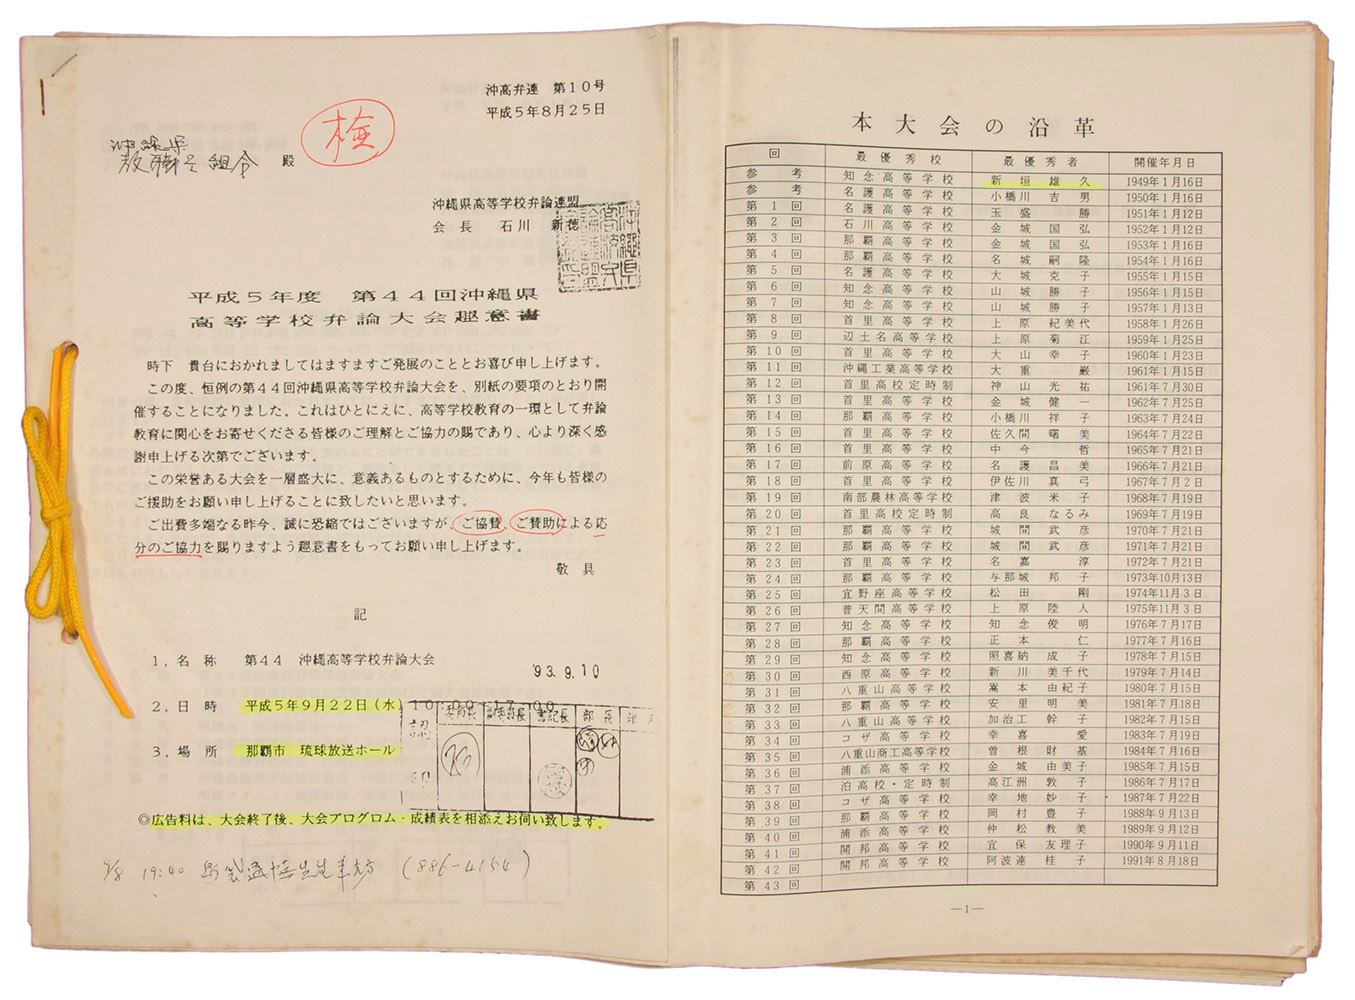 沖高弁連 第10号
平成5年8月25日
検
沖縄県
教職員組合 殿
沖縄県高等学校弁論連盟
会長 石川 新徳
平成5年度 第44回沖縄県
高等学校弁論大会趣意書
時下 貴台におかれましてはますますご発展のこととお喜び申し上げます。
この度、恒例の第44回沖縄県高等学校弁論大会を、別紙の要項のとおり開
催することになりました。これはひとえに、高等学校教育の一環として弁論
教育に関心をお寄せくださる皆様のご理解とご協力の賜であり、心より深く感
謝申上げる次第でございます。
この栄誉ある大会を一層盛大に、意義あるものとするために、今年も皆様の
ご援助をお願い申し上げることに致したいと思います。
ご出費多端なる昨今、誠に恐縮ではございますが、ご協賛、ご賛助による応
分のご協力を賜りますよう趣意書をもってお願い申し上げます。
敬具
記
1,名称 第44 沖縄高等学校弁論大会
'93.9.10
2,日時 平成5年9月22日(水) 10:00~17:00
認印 委員長 副委員長 書記長 部長
3,場所 那覇市 琉球放送ホール
◎広告料は、大会終了後、大会プログロム・成績表を相添えお伺い致します。
9/8 19:40 (886-4154)
本大会の沿革
回 最優秀校 最優秀者 開催年月日
参考 知念高等学校 新垣雄久 1949年1月16日
参考 名護高等学校 小橋川吉男 1950年1月16日
第1回 名護高等学校 玉盛勝 1951年1月12日
第2回 石川高等学校 金城国弘 1952年1月12日
第3回 那覇高等学校 金城国弘 1953年1月16日
第4回 那覇高等学校 名城嗣隆 1954年1月16日
第5回 名護高等学校 大城克子 1955年1月15日
第6回 知念高等学校 山城勝子 1956年1月15日
第7回 知念高等学校 山城勝子 1957年1月13日
第8回 首里高等学校 上原紀美代 1958年1月26日
第9回 辺土名高等学校 上原菊江 1959年1月25日
第10回 首里高等学校 大山幸子 1960年1月23日
第11回 沖縄工業高等学校 大重巌 1961年1月15日
第12回 首里高校定時制 神山光祐 1961年7月30日
第13回 首里高等学校 金城健一 1962年7月25日
第14回 那覇高等学校 小橋川祥子 1963年7月24日
第15回 首里高等学校 佐久間曙美 1964年7月22日
第16回 首里高等学校 中今哲 1965年7月21日
第17回 前原高等学校 名護昌美 1966年7月21日
第18回 首里高等学校 伊佐川真弓 1967年7月2日
第19回 南部農林高等学校 津波米子 1968年7月19日
第20回 首里高校定時制 高良なるみ 1969年7月19日
第21回 那覇高等学校 城間武彦 1970年7月21日
第22回 那覇高等学校 城間武彦 1971年7月21日
第23回 首里高等学校 名嘉淳 1972年7月21日
第24回 那覇高等学校 与那城邦子 1973年10月13日
第25回 宜野座高等学校 松田剛 1974年11月3日
第26回 普天間高等学校 上原陸人 1975年11月3日
第27回 知念高等学校 知念俊明 1976年7月17日
第28回 那覇高等学校 正本仁 1977年7月16日
第29回 知念高等学校 照喜納成子 1978年7月15日
第30回 西原高等学校 新川美千代 1979年7月14日
第31回 八重山高等学校 嵩本由紀子 1980年7月15日
第32回 那覇高等学校 安里明美 1981年7月18日
第33回 八重山高等学校 加治工幹子 1982年7月15日
第34回 コザ高等学校 幸喜愛 1983年7月19日
第35回 八重山商工高等学校 曽根財基 1984年7月16日
第36回 浦添高等学校 金城由美子 1985年7月15日
第37回 泊高校・定時制 高江洲敦子 1986年7月17日
第38回 コザ高等学校 幸地妙子 1987年7月22日
第39回 那覇高等学校 岡村豊子 1988年9月13日
第40回 浦添高等学校 仲松教美 1989年9月12日
第41回 開邦高等学校 宜保友理子 1990年9月11日
第42回 開邦高等学校 阿波連桂子 1991年8月18日
第43回
—1—